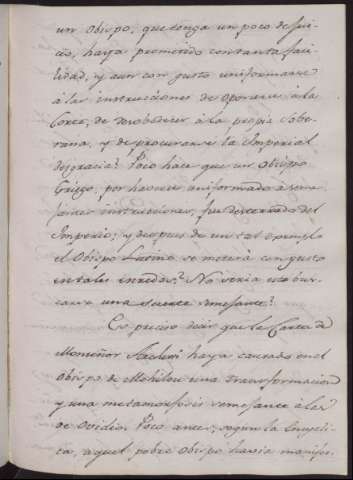 un Obispo, que tenga un poco de jui-
cio, haya prometido con tanta faci-
lidad, y aun con gusto uniformarse
à las instrucciónes de oponerse à la
Corte, de desobedecer à la propia Sobe-
rana, y de procurarse la Imperial
desgracia? Poco hace que un Obispo
Griego, por haverse uniformado à seme-
jantes instrucciones, fue desterrado del
Imperio; y despues de un tal exemplo
el Obispo Latino se meterà con gusto
en tales enredos? No seria esto bus-
carse una suerte semejante?
Es preciso decir que la Carta de
Monseñor haya causado en el
Obispo de Mohilow una transformacion
y una metamorfosis semejante à las
de Ovidio. Poco antes, segun la Encycli-
ca, aquel pobre Obispo havia manifes-